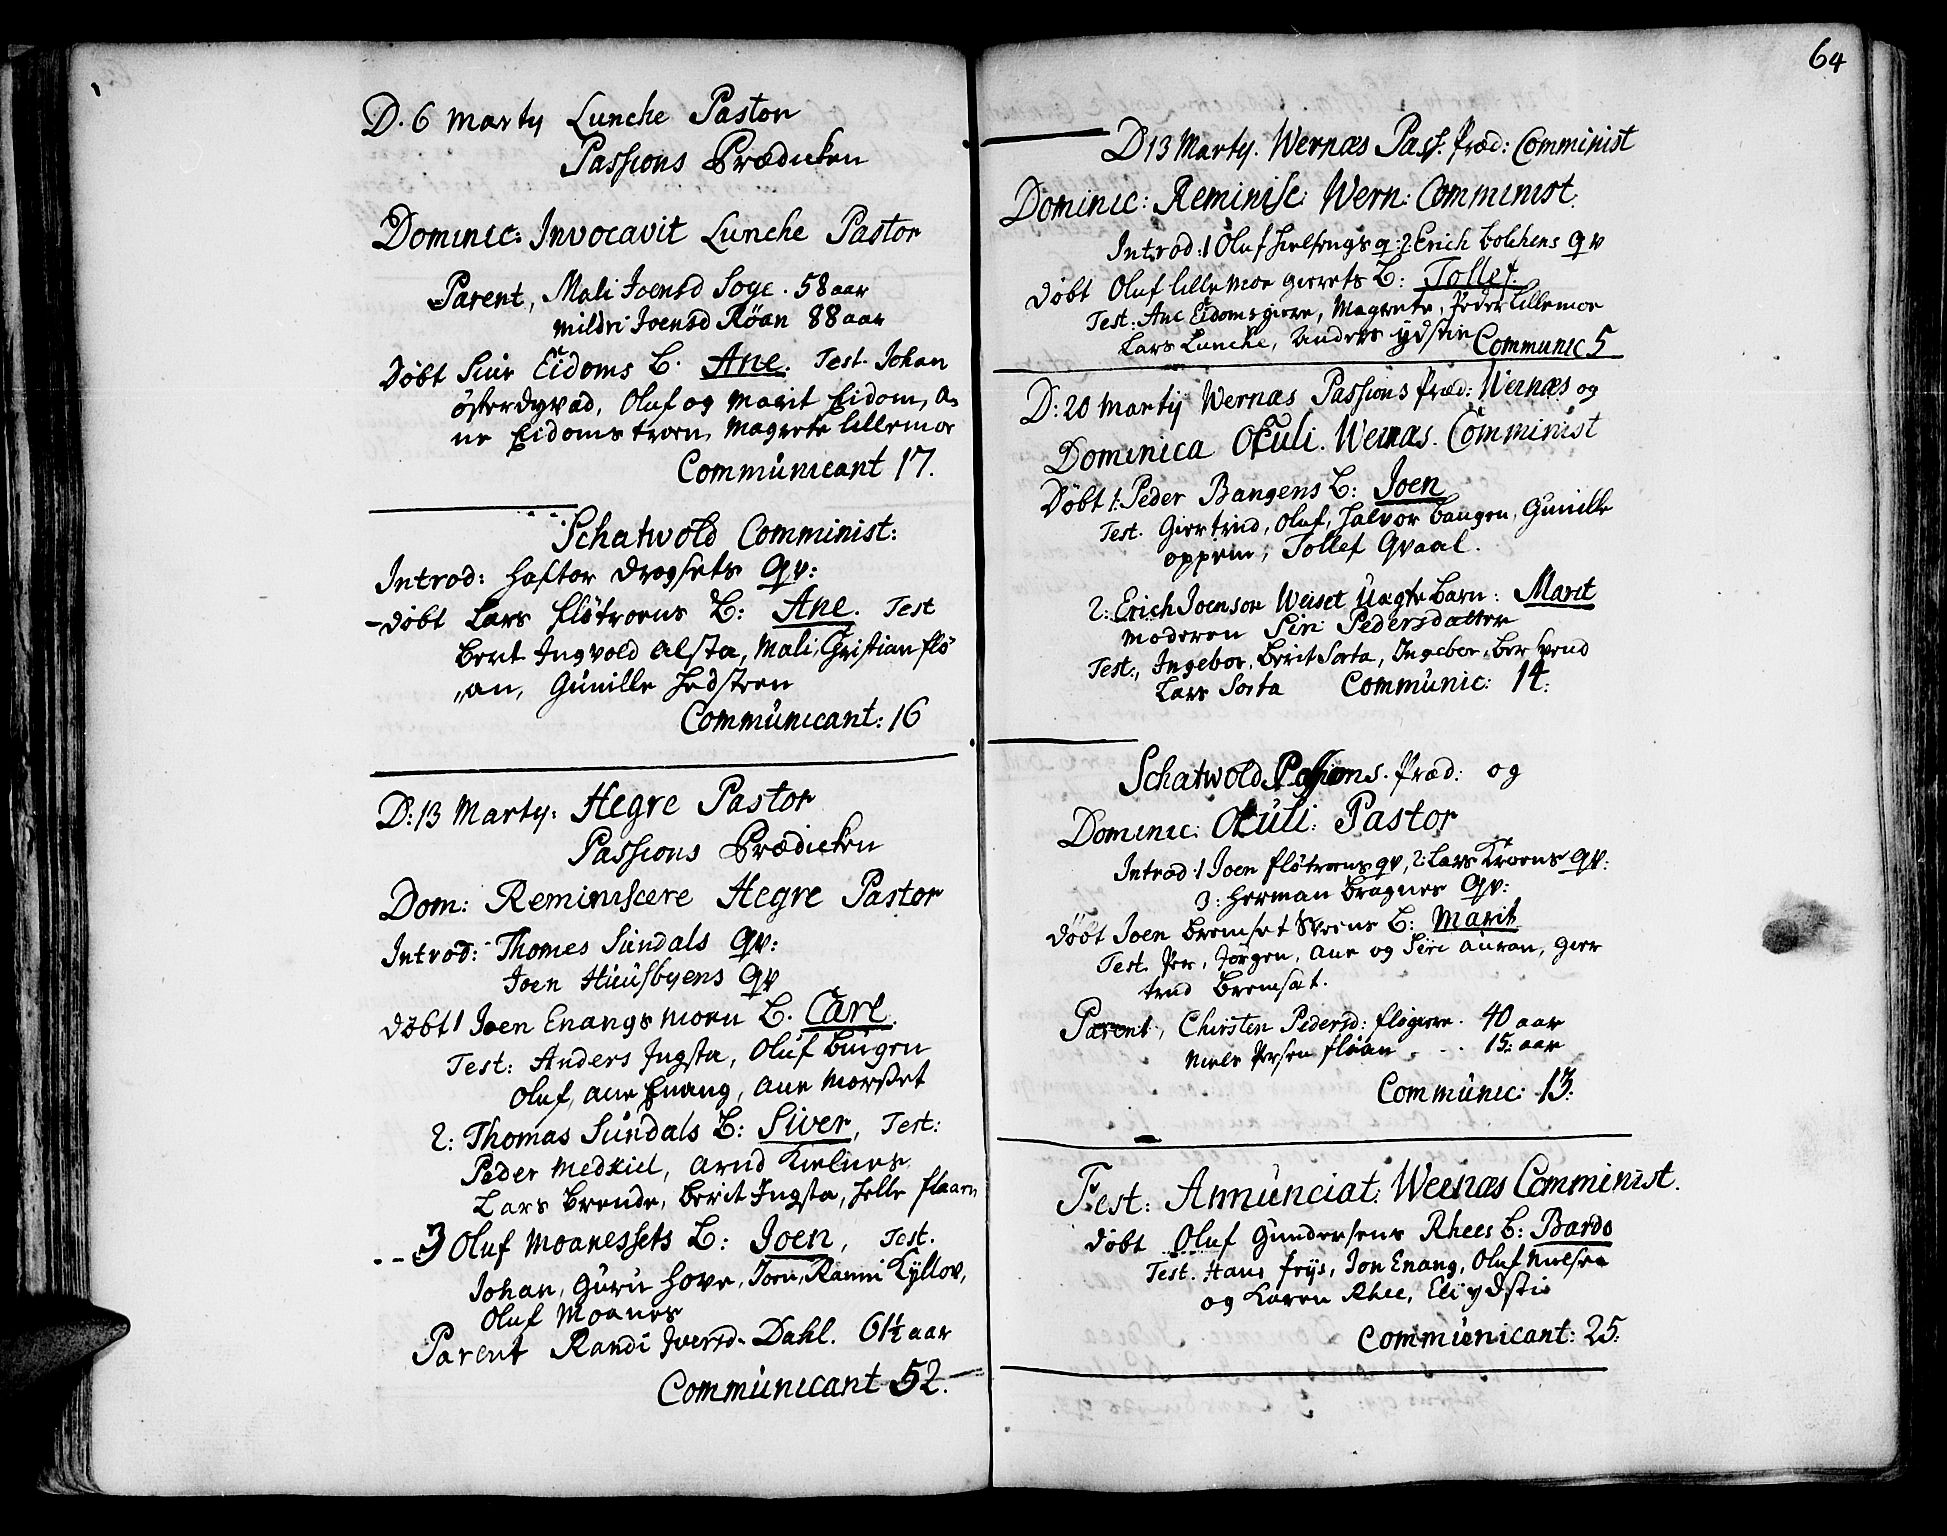 D. 6 Marty Lunche Pastor
Passions Prædicken
Dominic: Invocavit Lunche Pastor
Parent, Mali Joensd Soge. 58 aar
Mildri Joensd Røan 88 aar
Døbt Siur Eidoms B. Ane. Test. Johan
østerdyvad, Oluf og Marit Eidom, A-
ne Eidomstroen, Magrete lillemoe
Communicant 17.
Schatwold Comminist:
Introd: Haftor Drogsets qv:
Døbt Lars fløtroens B: Ane. Test
Berit Ingvold Alsta, Mali, Christian flø
"an, Gunille Hedstren
Communicant: 16
D: 13 Marty: Hegre Pastor
Passions Prædicken
Dom: Reminiscere Hegre Pastor
Introd: Thomes Sundals qv:
Joen Huusbyens qv
Døbt 1 Joen Enangs moen B. Carl.
Test: Anders Ingsta, Oluf Bingen
Oluf, Ane Enang, Ane Morset
2: Thomas Sundals B: Siver, Test:
Peder Medkiel, Arnd Kielnes
Lars Brende, Berit Ingsta, Helle flaarn
3 Oluf Moanessets B: Joen, Test.
Johan, Guru Hove, Joen, Ranni Kyllov,
Oluf Moanes
Parent Randi Iversd. Dahl. 61½ aar
Communicant 52.
64
D 13 Marty. Wernæs Pass. Præd: Comminist
Dominic: Reminisc: Wern: Comminist.
Introd: 1 Oluf Hielsengs q: 2 Erich Bolchens qv
Døbt Oluf lille moe gierets B: Tollef.
Test: Ane Eidomsgiere, Magrete, Peder Lillemoe
Lars Lunche, Anders ydstie Communic 5
D: 20 Marty Wernæs Passions Præd: Wernæs og
Dominica Okuli. Wernæs. Comminist
Døbt 1: Peder Bangens B: Joen
Test. Giertrud, Oluf, Halvor Bangen, Gunille
oppem, Tollef Qvaal.
2: Erich Joensøn Weiset Uægte Barn: Marit
Moderen Siri Pedersdatter
Test:, Ingebor, Berit Sorta, Ingebor,
Lars Sorta Communic: 14:
Schatwold Passions. Præd: og
Dominic: Okuli: Pastor
Introd: 1 Joen fløtroens qv, 2: Lars Kroens qv:
3: Herman Bragnes qv:
Døbt Joen Bremset Sveens B: Marit
Test. Per, Jørgen, Ane og Siri Auran, Gier
trud Bremset.
Parent, Chirsten Pedersd: fløgiere. 40 aar
Niels Persen fløan . . . 15: aar
Communic: 13:
Fest: Annunciat: Wernæs Comminist.
Døbt Oluf Gundersens Rhees B: Bardo
Test. Hans friis, Jon Enang, Oluf Nielsen
og Karen Rhee, Eli ydstie
Communicant: 25: